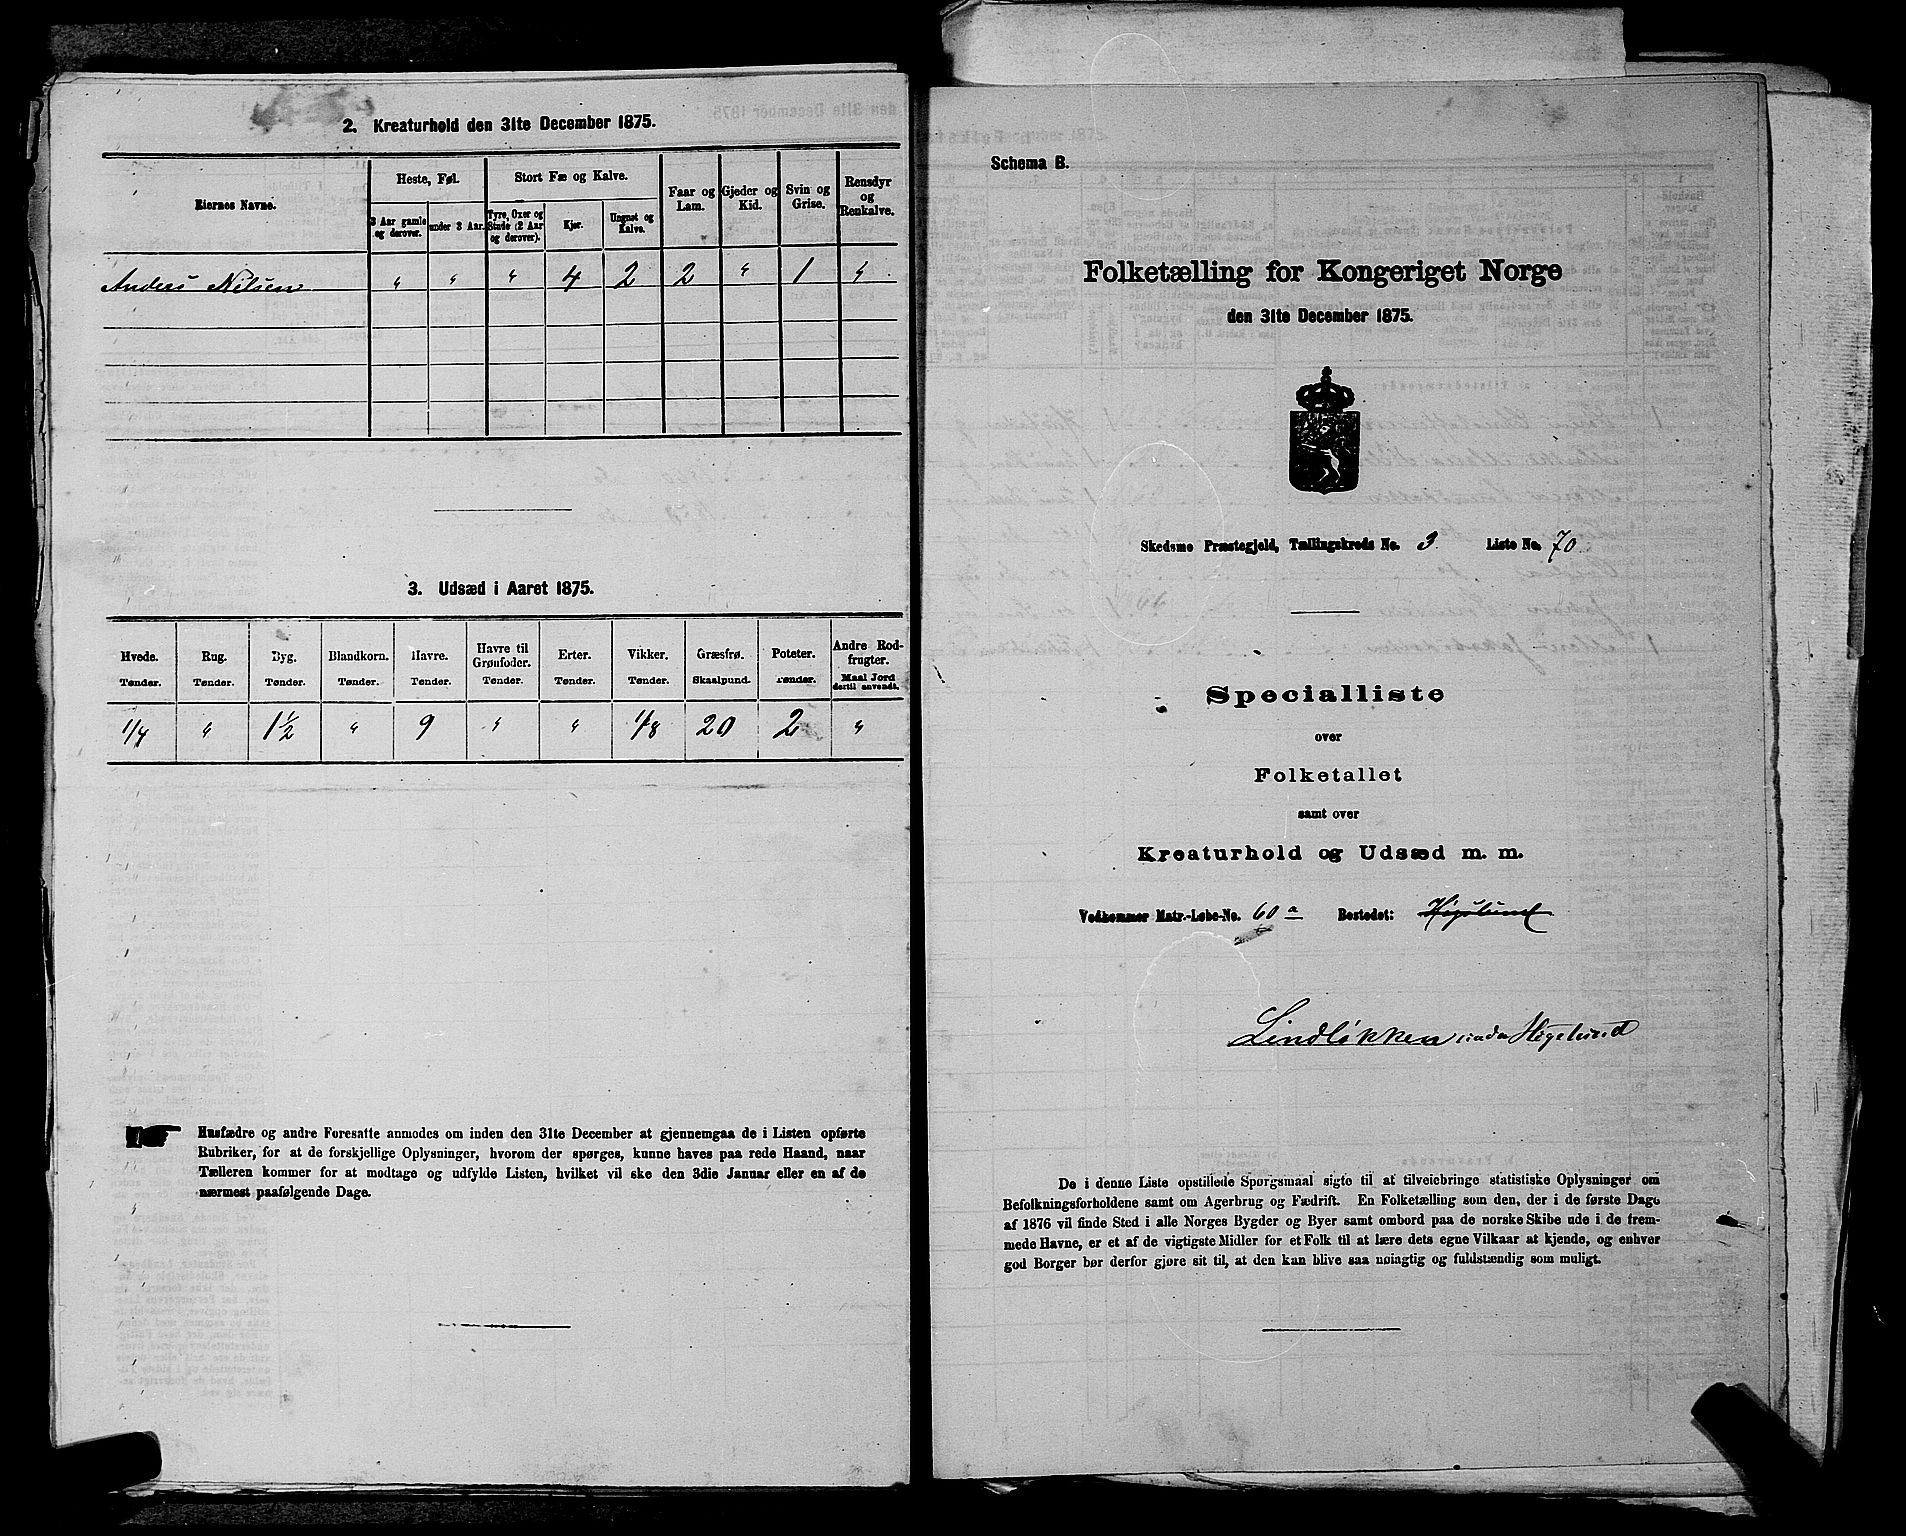 2. Kreaturhold den 31te December 1875.
Eiernes Navne.
Heste, Føl.
Stort Fæ og Kalve.
Faar og Lam.
Gjeder og Kid.
Svin og Grise.
Rensdyr og Renkalve.
3 Aar gamle og derover.
under 3 Aar.
Tyre, Oxer og Stude (2 Aar og derover).
Kjør.
Ungnøt og Kalve.
Anders Nilsen " " " 4 2 2 " 1 "
3. Udsæd i Aaret 1875.
Hvede. Rug. Byg. Blandkorn. Havre. Havre til Grønfoder. Erter. Vikker. Græsfrø. Poteter. Andre Rodfrugter.
Tønder. Tønder. Tønder. Tønder. Tønder. Tønder. Tønder. Tønder. Skaalpund. Tønder. Maal Jord dertil anvendt.
1/4 " 1 1/2 " 9 " " 1/8 20 2 "
Husfædre og andre Foresatte anmodes om inden den 31te December at gjennemgaa de i Listen opførte
Rubriker, for at de forskjellige Oplysninger, hvorom der spørges, kunne haves paa rede Haand, naar
Tælleren kommer for at modtage og udfylde Listen, hvilket vil ske den 3die Januar eller en af de
nærmest paafølgende Dage.
Schema B.
Folketælling for Kongeriget Norge
den 31te December 1875.
Skedsmo Præstegjeld, Tællingskreds No. 3 Liste No. 70
Specialliste
over
Folketallet
samt over
Kreaturhold og Udsæd m. m.
Vedkommer Matr.-Løbe-No. 60 a Bostedet: Høgslund
Lindløkken under Høgslund
De i denne Liste opstillede Spørgsmaal sigte til at tilveiebringe statistiske Oplysninger om
Befolkningsforholdene samt om Agerbrug og Fædrift. En Folketælling som den, der i de første Dage
af 1876 vil finde Sted i alle Norges Bygder og Byer samt ombord paa de norske Skibe ude i de frem-
mede Havne, er et af de vigtigste Midler for et Folk til at lære dets egne Vilkaar at kjende, og enhver
god Borger bør derfor gjøre sit til, at den kan blive saa nøiagtig og fuldstændig som muligt.